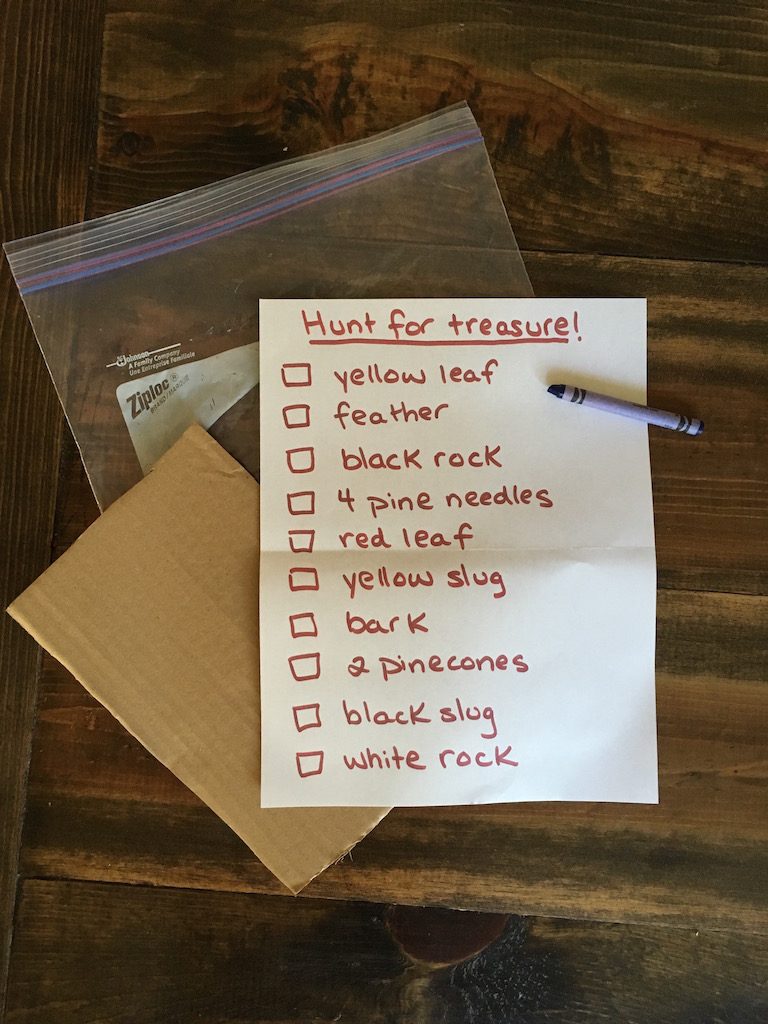 Johnson
A Family Company
Une Entreprise Familiale
Ziploc®
BRAND/MARQUE
Hunt for treasure!
yellow leaf
feather
black rock
4 pine needles
red leaf
yellow slug
bark
2 pinecones
black slug
white rock